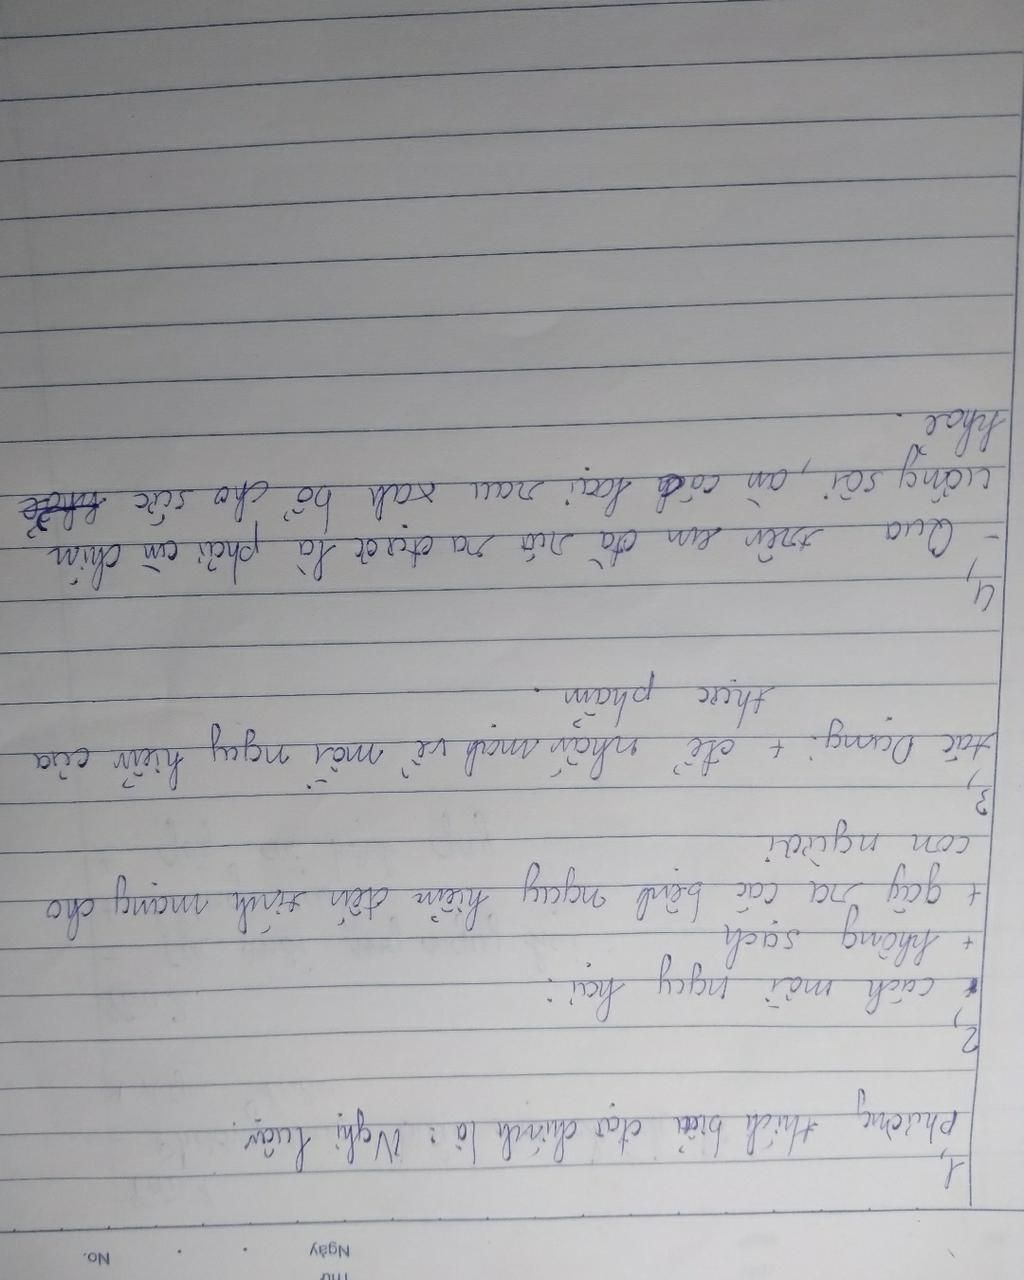 Thứ
Ngày
No.
1,
Phương thích biểu đạt chính là : Nghị luận.
2,
cách mối nguy hại :
+ không sạch
+ gây ra các bệnh nguy hiểm đến tính mạng cho
con người
3,
tác Dụng : + để nhấn mạnh về mối nguy hiểm của
thực phẩm .
4,
- Qua trên em đã rút ra được là phải ăn chín
uống sôi, ăn các loại rau xanh bổ cho sức
khoẻ .